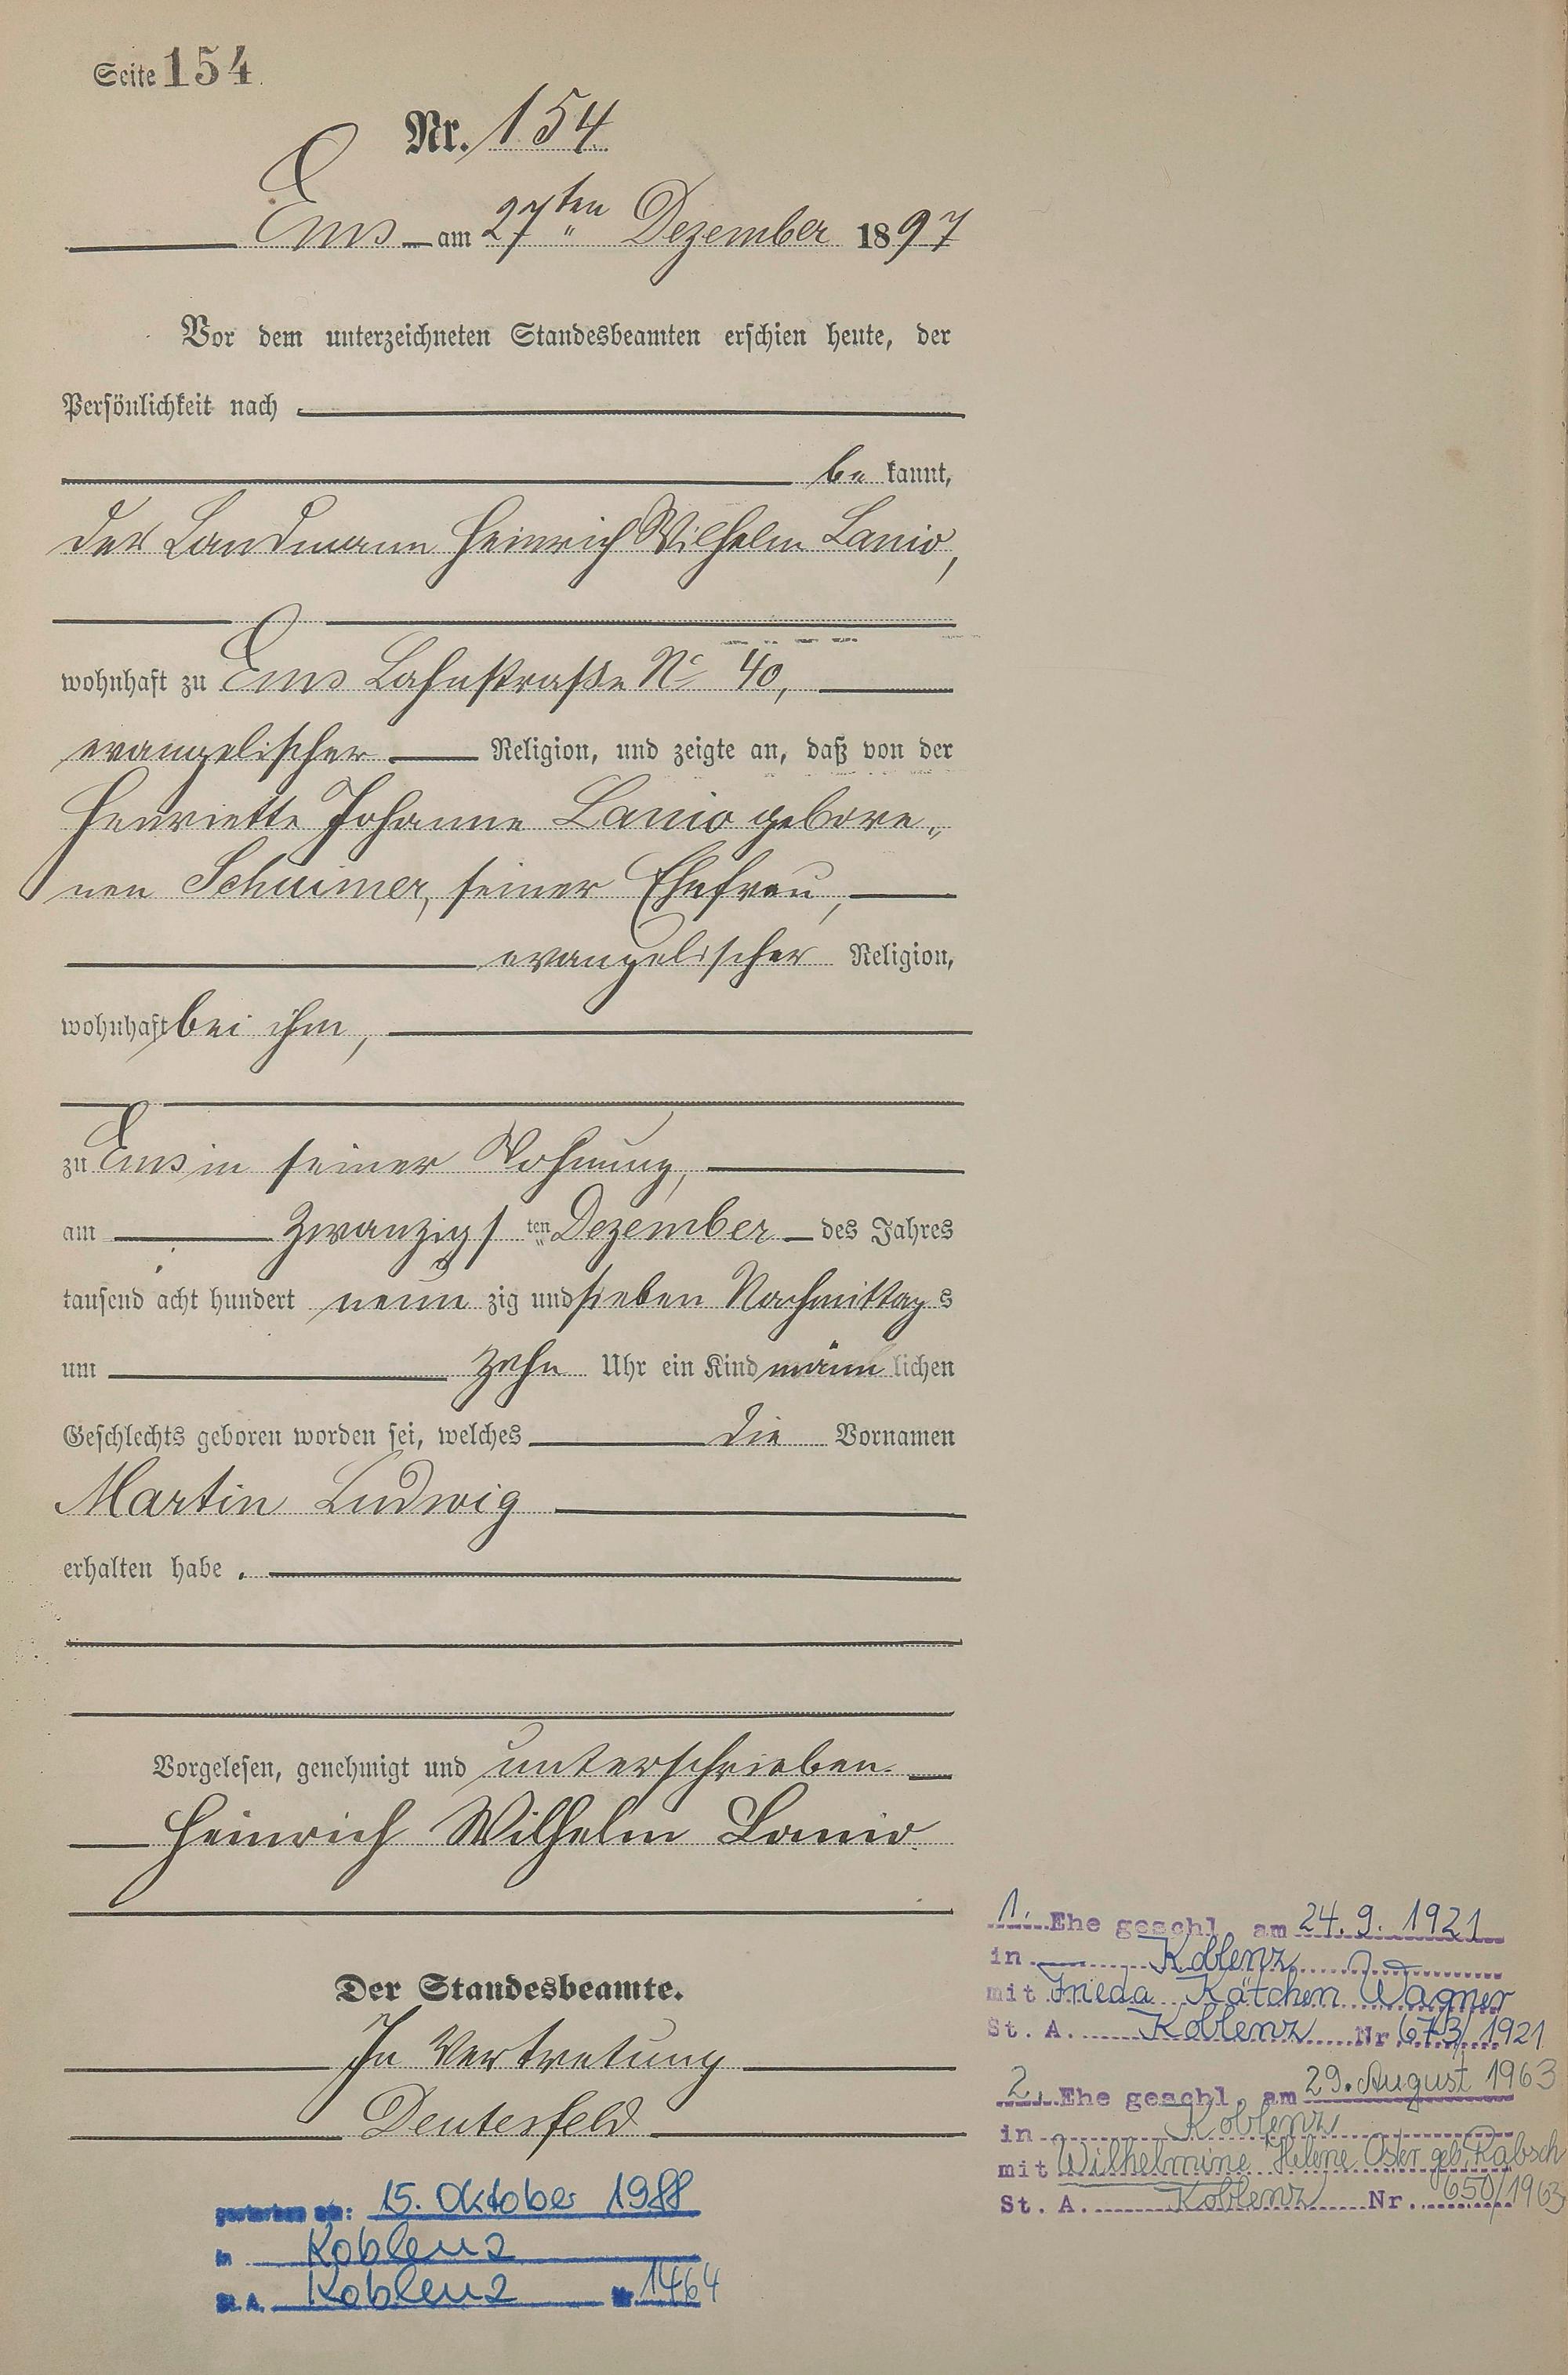 Seite 154.
Nr. 154.
Ems am 27ten Dezember 1897
Vor dem unterzeichneten Standesbeamten erschien heute, der
Persönlichkeit nach
be kannt,
der Landmann Heinrich Wilhelm Lanio,
wohnhaft zu Ems Lahnstraße No 40,
evangelischer Religion, und zeigte an, daß von der
Henriette Johanne Lanio gebore„
nen Schuimer, seiner Ehefrau,
evangelischer Religion,
wohnhaft bei ihm,
zu Ems in seiner Wohnung,
am zwanzigs ten Dezember des Jahres
tausend acht hundert neun zig und sieben Nachmittag s
um zehn Uhr ein Kind männ lichen
Geschlechts geboren worden sei, welches die Vornamen
Martin Ludwig
erhalten habe.
Vorgelesen, genehmigt und unterschrieben.
Heinrich Wilhelm Lanio.
Der Standesbeamte.
In Vertretung
Deutesfeld
gestorben am: 15. Oktober 1988
in Koblenz
St. A. Koblenz Nr. 1464
1. Ehe geschl. am 24.9. 1921
in Koblenz
mit Frieda Kätchen Wagner
St. A. Koblenz Nr 673/1921
2. Ehe geschl. am 29. August 1963
in Koblenz
mit Wilhelmine Helene Oster geb. Rabsch
St. A. Koblenz Nr. 650/1963